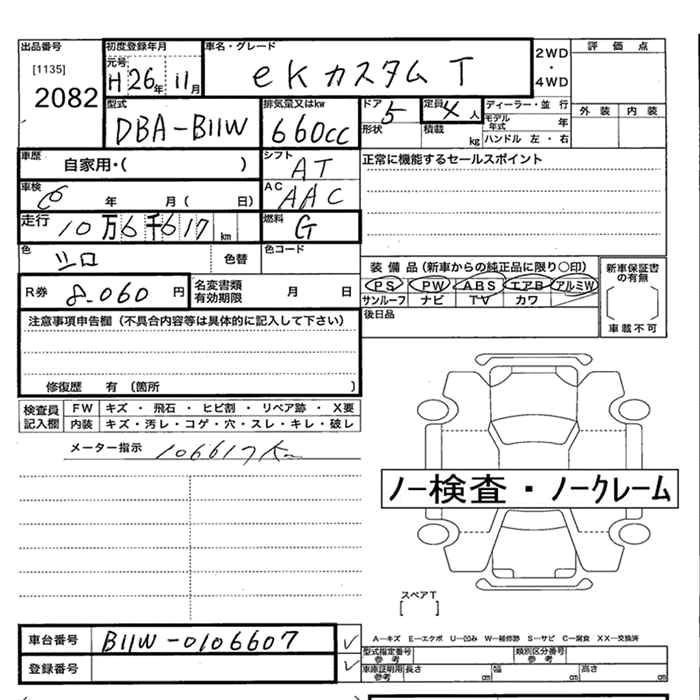 出品番号 初度登録年月 車名・グレード 評価点
[1135] 元号 2WD・4WD
2082 H 26年 11月 eKカスタム T 外装 内装
型式 排気量又はkw ドア 定員 ディーラー・並行
DBA-B11W 660cc 5 4人 モデル年式 年
形状 積載 kg ハンドル 左・右
車歴 自家用・( ) シフト AT 正常に機能するセールスポイント
車検 6年 月( 日) AC AAC
走行 10万6千617km 燃料 G
色 シロ 色替 色コード
装備品(新車からの純正品に限り○印) 新車保証書の有無
R券 8-060円 名変書類有効期限 月 日 PS PW ABS エアB アルミW
サンルーフ ナビ TV カワ
後日品 車載不可
注意事項申告欄(不具合内容等は具体的に記入して下さい)
修復歴 有(箇所 )
検査員記入欄 FW キズ・飛石・ヒビ割・リペア跡・X要
内装 キズ・汚レ・コゲ・穴・スレ・キレ・破レ
メーター指示 106617K
ノー検査・ノークレーム
スペアT
[ ]
車台番号 B11W-0106607 ✓
A―キズ E―エクボ U―凹み W―補修跡 S―サビ C―腐食 XX―交換済
登録番号 ✓
型式指定番号 参考 類別区分番号 参考
車庫証明用 参考 長さ cm 幅 cm 高さ cm